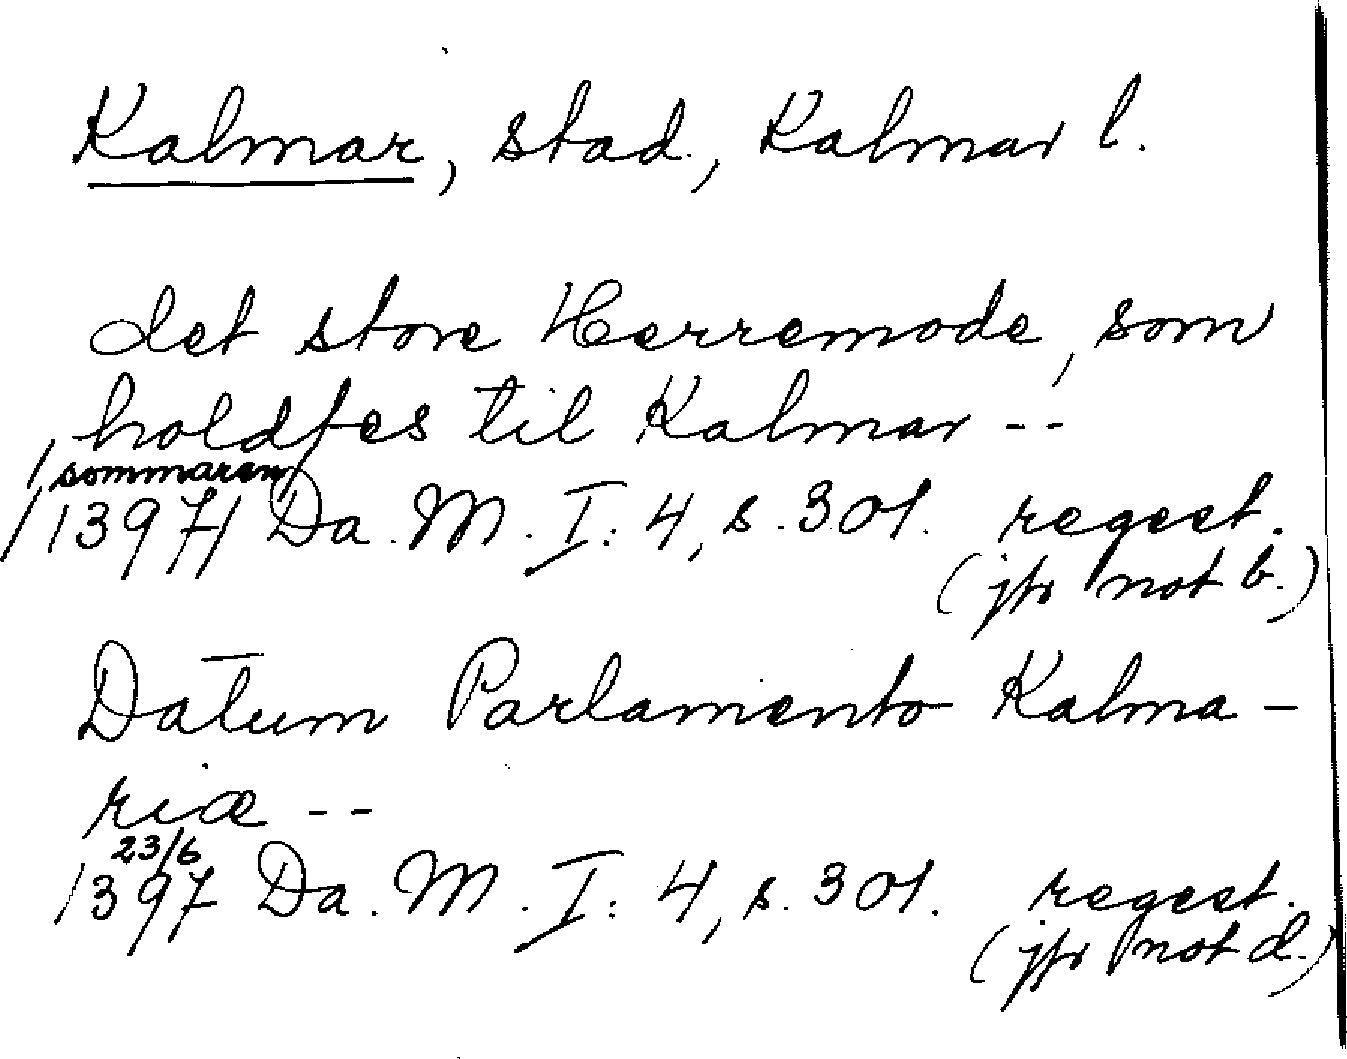 Kalmar, stad, Kalmar l.
det store Herremode, som
holdtes til Kalmar --
/sommaren/
/1397/ Da. M. I: 4, s. 301. regest.
(jfr not b.)
Datum Parlamento Kalma-
riæ --
23/6
1397 Da. M. I: 4, s. 301. regest.
(jfr not d.)